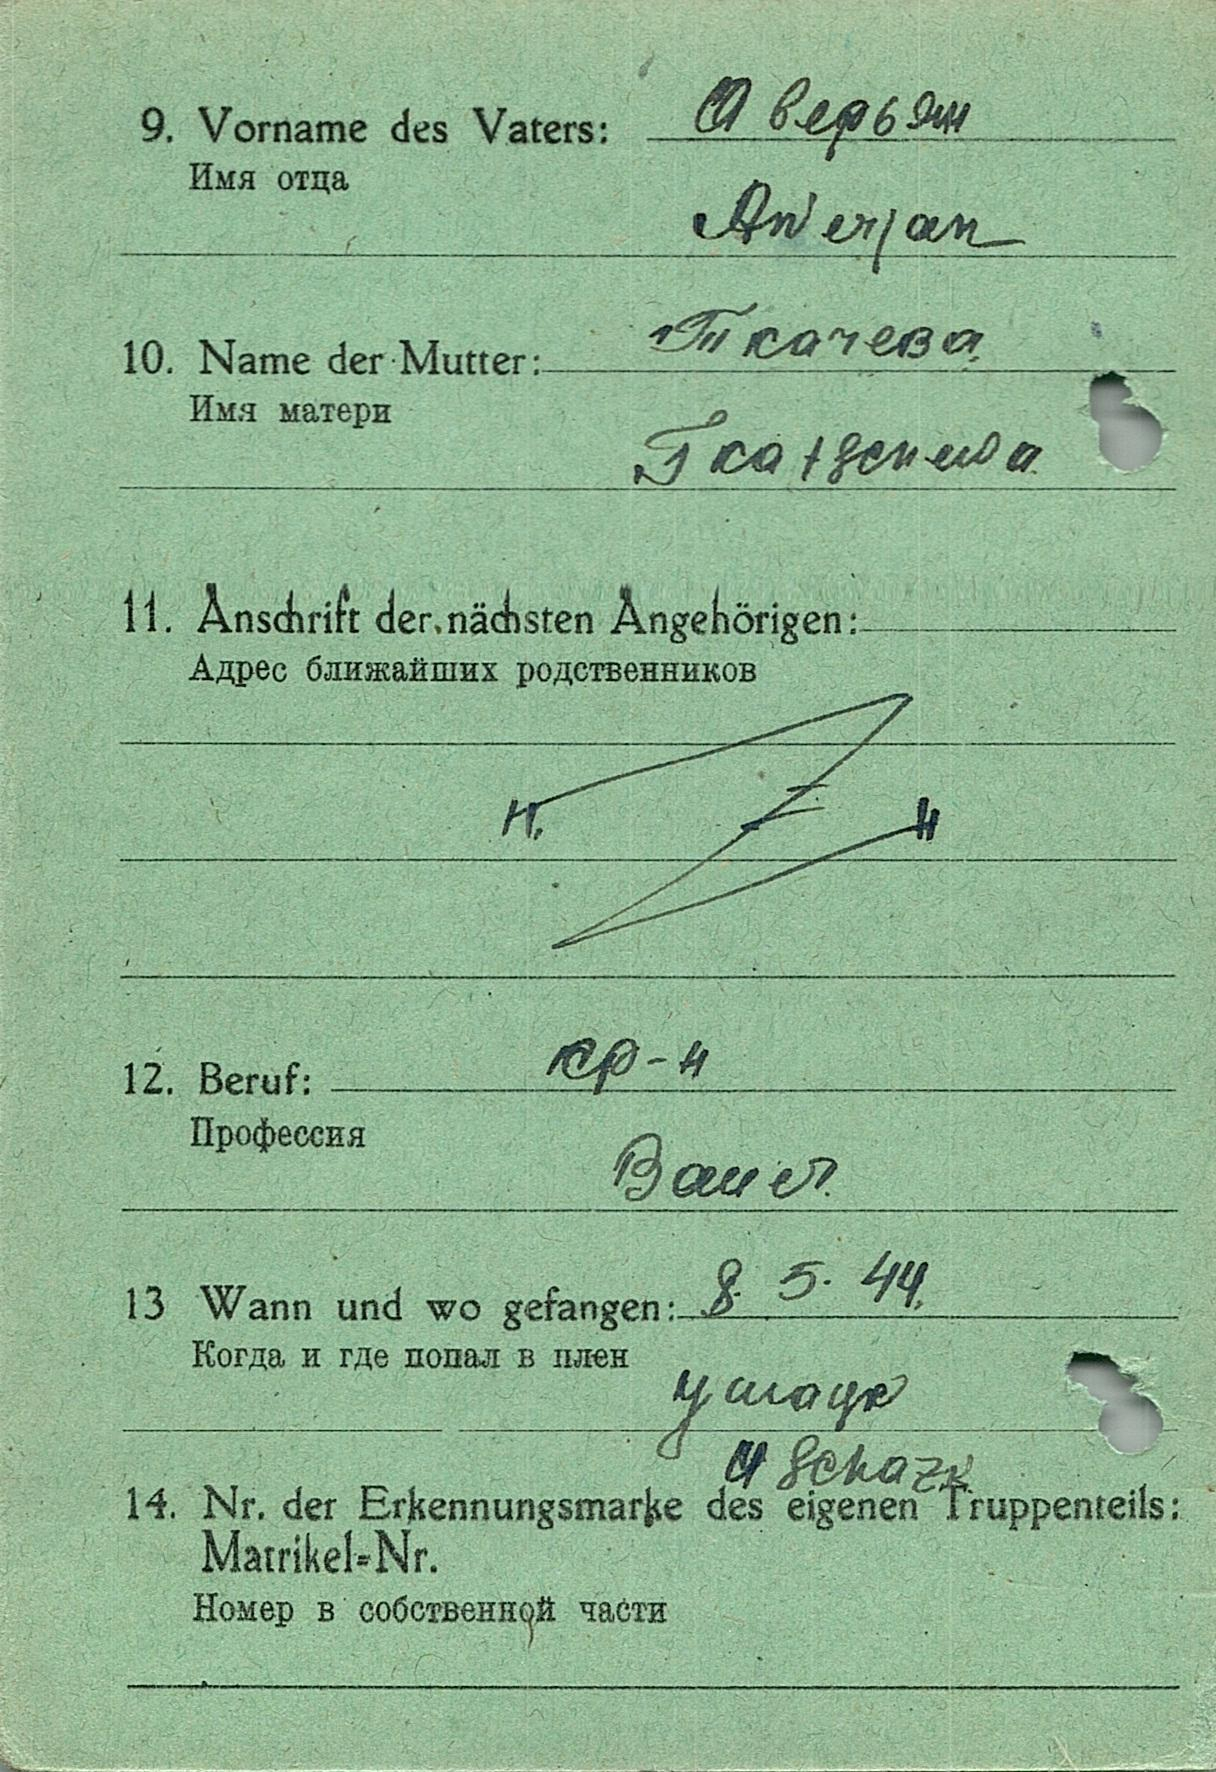 9. Vorname des Vaters: Аверьян
Имя отца
Awerjan
10. Name der Mutter: Ткачева
Имя матери
Tkatschewa
11. Anschrift der nächsten Angehörigen:
Адрес ближайших родственников
Н. Н
12. Beruf: кр-н
Профессия
Bauer.
13 Wann und wo gefangen: 8. 5. 44.
Когда и где попал в плен
Uschazk
14. Nr. der Erkennungsmarke des eigenen Truppenteils:
Matrikel=Nr.
Номер в собственной части